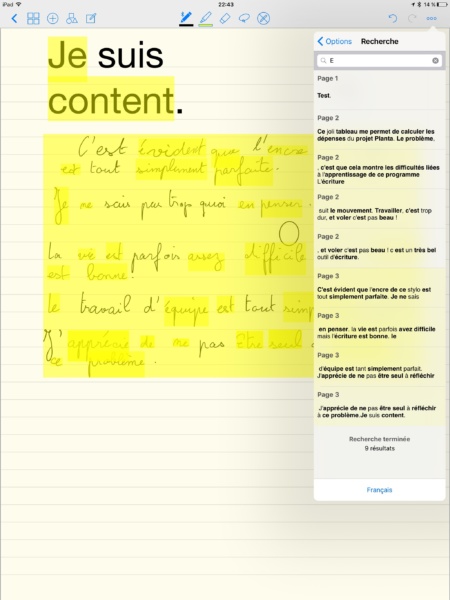 iPad
22:43
14 %
Je suis
content.
C'est évident que l'encre
est tout simplement parfaite.
Je ne sais pas trop quoi en penser.
la vie est parfois assez difficile
est bonne.
le travail d'équipe est tout simp
J'apprécie de ne pas être seul
ce problème.
Options
Recherche
E
Page 1
Test.
Page 2
Ce joli tableau me permet de calculer les
dépenses du projet Planta. Le problème,
Page 2
, c'est que cela montre les difficultés liées
à l'apprentissage de ce programme
L'écriture
Page 2
suit le mouvement. Travailler, c'est trop
dur, et voler c'est pas beau !
Page 2
, et voler c'est pas beau ! c est un très bel
outil d'écriture.
Page 3
C'est évident que l'encre de ce stylo est
tout simplement parfaite. Je ne sais
Page 3
en penser. la vie est parfois avez difficile
mais l'écriture est bonne. le
Page 3
d'équipe est tant simplement parfait.
J'apprécie de ne pas être seul à réfléchir
Page 3
J'apprécie de ne pas être seul à réfléchir
à ce problème.Je suis content.
Recherche terminée
9 résultats
Français